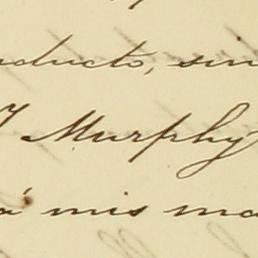 ducto, sin
Murphy
á mis ma